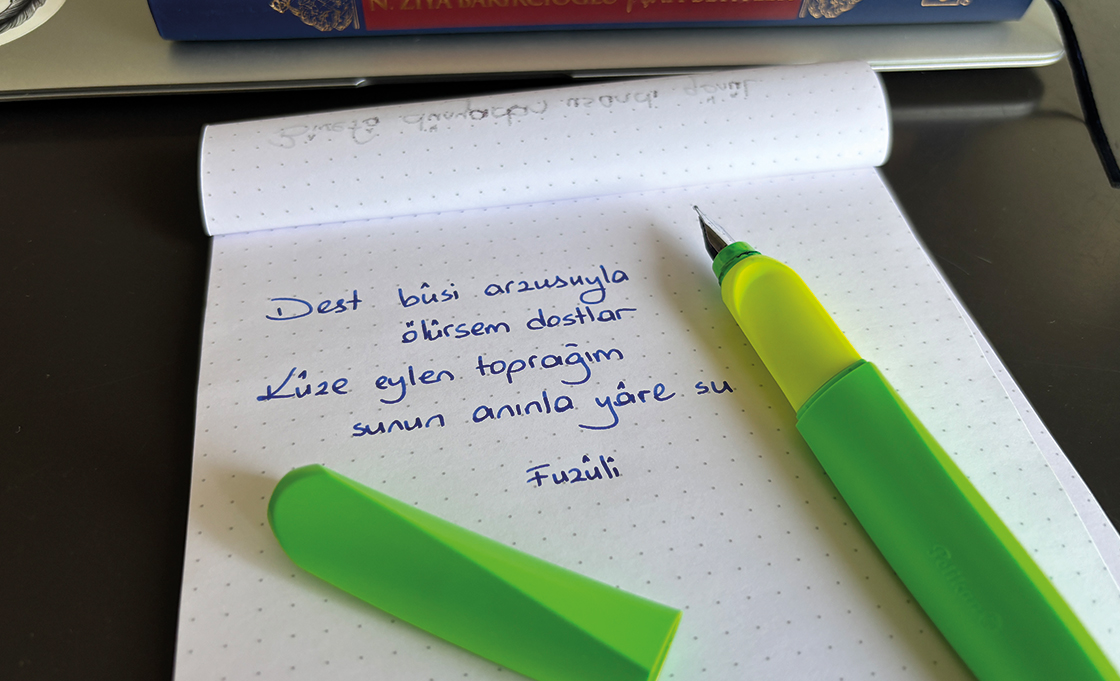 N. ZİYA BAKIRCIOĞLU
dünyadan usandı gönül
Dest bûsi arzusuyla
ölürsem dostlar
Kûze eylen toprağım
sunun anınla yâre su
Fuzûli
Pelikan